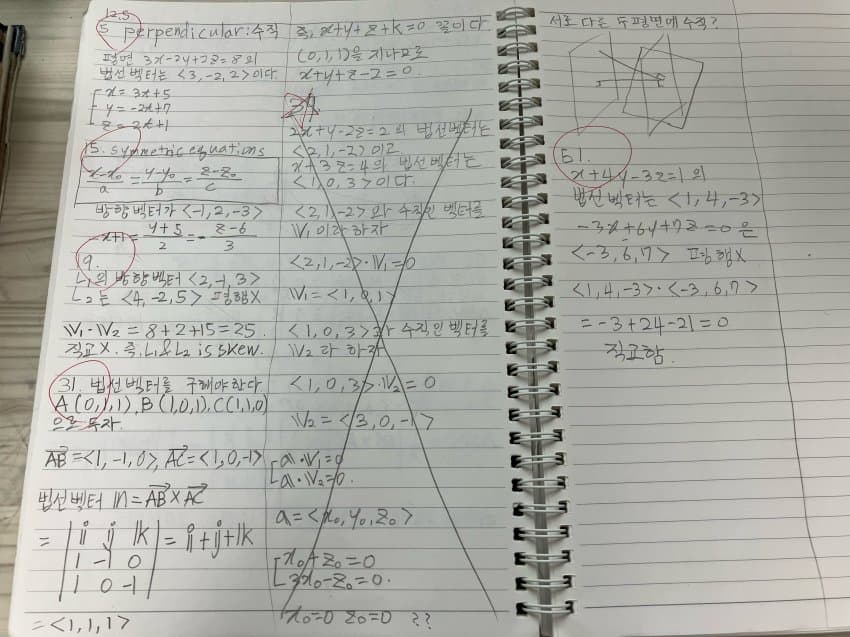 12.5
5 perpendicular: 수직
평면 3x-2y+2z=8의
법선벡터는 <3, -2, 2>이다.
x = 3t+5
y = -2t+7
z = 2t+1
15. symmetric equations
x-x₀/a = y-y₀/b = z-z₀/c
방향벡터가 <-1, 2, -3>
-x+1 = y+5/2 = -z-6/3
9.
L₁의 방향벡터 <2, -1, 3>
L₂는 <4, -2, 5> 평행X
V₁·V₂ = 8+2+15=25.
직교X. 즉, L₁ & L₂ is skew.
31. 법선벡터를 구해야한다
A(0,1,1), B(1,0,1), C(1,1,0)
으로 두자.
AB=<1, -1, 0>, AC=<1, 0, -1>
법선벡터 n = AB×AC
= |i j k| = i+j+k
|1 -1 0|
|1 0 -1|
= <1, 1, 1>
즉, x+y+z+k=0 꼴이다.
(0,1,1)을 지나므로
x+y+z-2=0.
2x+y-2z=2의 법선벡터는
<2, 1, -2>이고
x+3z=4의 법선벡터는
<1, 0, 3>이다.
<2, 1, -2>와 수직인 벡터를
V₁이라 하자
<2, 1, -2>·V₁=0
V₁=<1, 0, 1>
<1, 0, 3>과 수직인 벡터를
V₂라 하자
<1, 0, 3>·V₂=0
V₂=<3, 0, -1>
a·V₁=0
a·V₂=0.
a=<x₀, y₀, z₀>
x₀+z₀=0
3x₀-z₀=0.
x₀=0 z₀=0 ??
서로 다른 두 평면에 수직?
51.
x+4y-3z=1의
법선벡터는 <1, 4, -3>
-3x+6y+7z=0은
<-3, 6, 7> 평행X
<1, 4, -3>·<-3, 6, 7>
= -3+24-21=0
직교함.